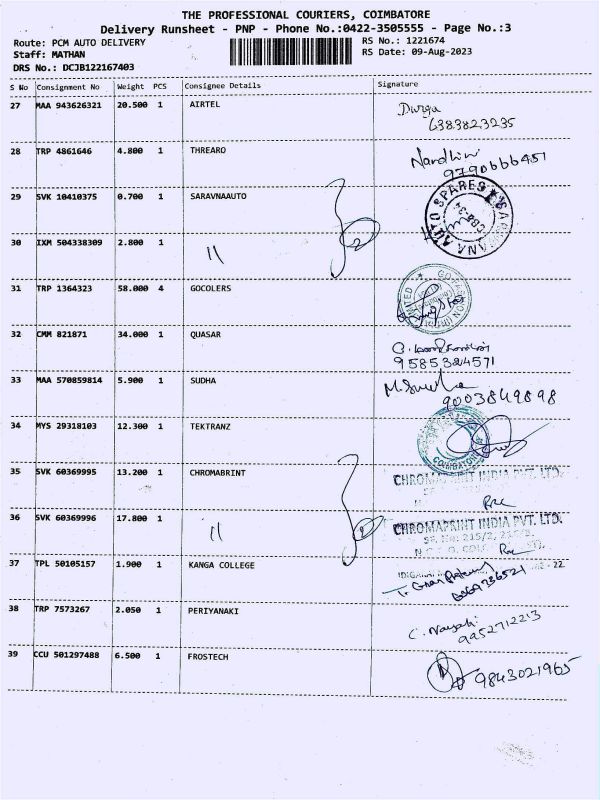 THE PROFESSIONAL COURIERS, COIMBATORE
Delivery Runsheet - PNP - Phone No.:0422-3505555 - Page No.:3
Route: PCM AUTO DELIVERY RS No.: 1221674
Staff: MATHAN RS Date: 09-Aug-2023
DRS No.: DCJB122167403
S No Consignment No Weight PCS Consignee Details Signature
27 MAA 943626321 20.500 1 AIRTEL Durga
6383823235
28 TRP 4861646 4.800 1 THREARO Nandhini
9790666451
29 SVK 10410375 0.700 1 SARAVNAAUTO
AUTO SPARES
30 IXM 504338309 2.800 1 〃 2
31 TRP 1364323 58.000 4 GOCOLERS
32 CMM 821871 34.000 1 QUASAR
9585324571
33 MAA 570859814 5.900 1 SUDHA
9003849898
34 MYS 29318103 12.300 1 TEKTRANZ
COIMBATORE
35 SVK 60369995 13.200 1 CHROMABRINT CHROMAPRINT INDIA PVT. LTD.
36 SVK 60369996 17.800 1 〃 2 CHROMAPRINT INDIA PVT. LTD.
SF. No: 215/2,
37 TPL 50105157 1.900 1 KANGA COLLEGE
38 TRP 7573267 2.050 1 PERIYANAKI C. Nayaki
9952712213
39 CCU 501297488 6.500 1 FROSTECH 9843021965